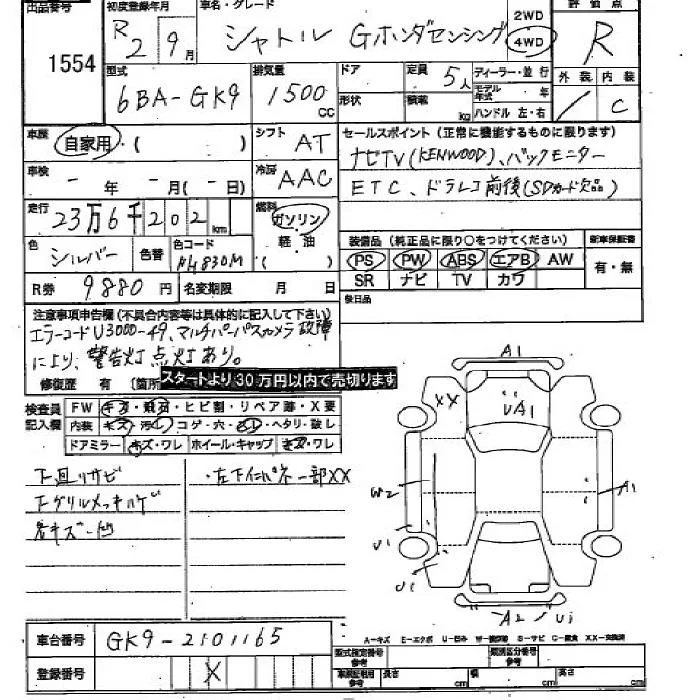 出品番号
1554
初度登録年月
R 2 9月
車名・グレード
シャトル Gホンダセンシング
2WD
4WD
評価点
R
型式
6BA-GK9
排気量
1500
CC
ドア
形状
定員 5人
積載 kg
ディーラー・並行
モデル年式 年
ハンドル 左・右
外装 内装
/ C
車歴 自家用・( )
シフト AT
セールスポイント(正常に機能するものに限ります)
ナビTV(KENWOOD)、バックモニター
ETC、ドラレコ前後(SDカード欠品)
車検 - 年 - 月(- 日)
冷房 AAC
走行 23万6千202km
燃料 ガソリン・軽油
( )
色 シルバー
色替
色コード NH830M
装備品(純正品に限り○をつけてください)
新車保証書
PS PW ABS エアB AW
SR ナビ TV カワ
有・無
R券 9880円
名変期限 月 日
祭日品
注意事項申告欄(不具合内容等は具体的に記入して下さい)
エラーコードU3000-49、マルチパーパスカメラ故障
により、警告灯点灯あり。
修復歴 有 〔箇所
スタートより30万円以内で売切ります
検査員記入欄
FW キズ・飛石・ヒビ割・リペア跡・X要
内装 キズ・汚レ・コゲ・穴・ヘタリ・破レ
ドアミラー キズ・ワレ ホイール・キャップ キズ・ワレ
下回りサビ
・左下インパネ一部XX
Fグリルメッキハゲ
各キズ・凹
A1
XX
UA1
W2
A1
U1
U1
A2
U1
車台番号 GK9-2101165
登録番号 X
A-キズ E-エクボ U-凹み S-サビ C-腐食 XX-交換済
型式指定番号 参考
類別区分番号 参考
長さ cm
幅 cm
高さ cm